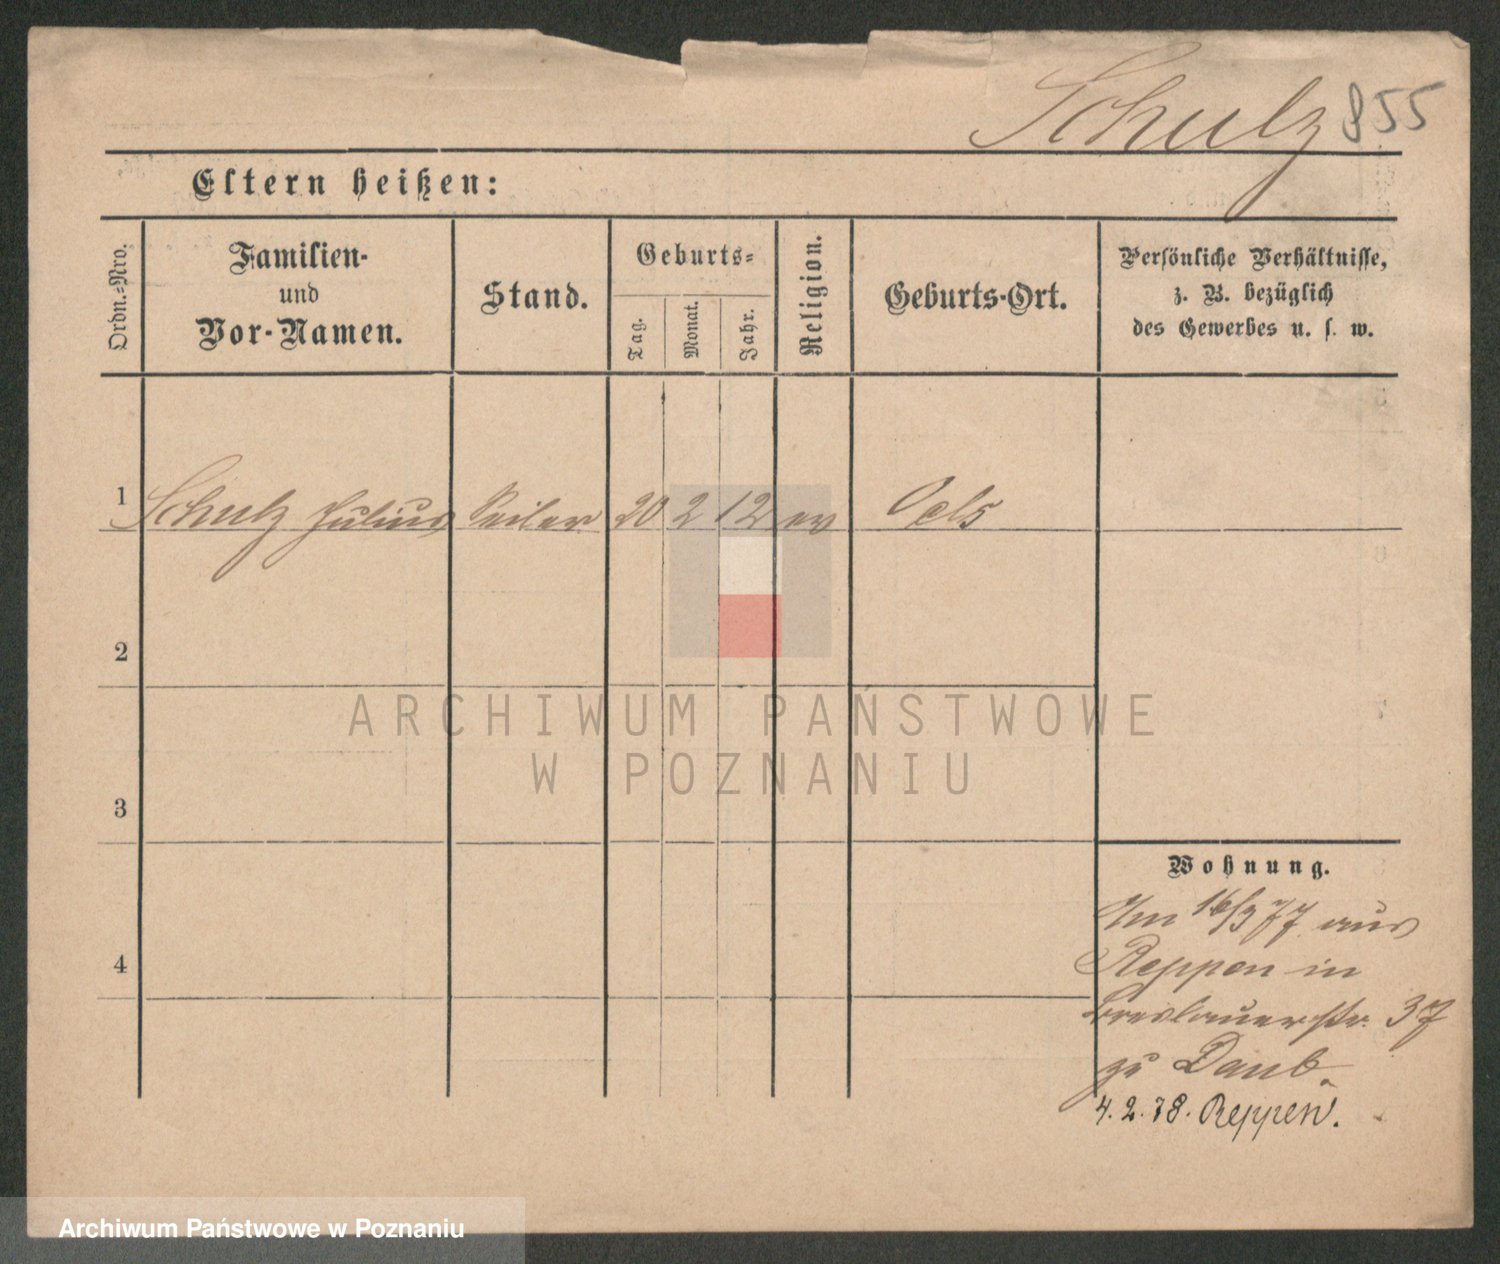 Schulz 855
Eltern heißen:
Ordn.-Nro.
Familien-
und
Vor-Namen.
Stand.
Geburts-
Tag.
Monat.
Jahr.
Religion.
Geburts-Ort.
Persönliche Verhältnisse,
z. B. bezüglich
des Gewerbes u. s. w.
1 Schulz Julius Seiler 20 2 12 ev Oels
2
3
4
Wohnung.
Am 16/3 77 aus
Reppen in
Breslauerstr. 37
zu Daub.
4.2.78. Reppen.
ARCHIWUM PAŃSTWOWE
W POZNANIU
Archiwum Państwowe w Poznaniu